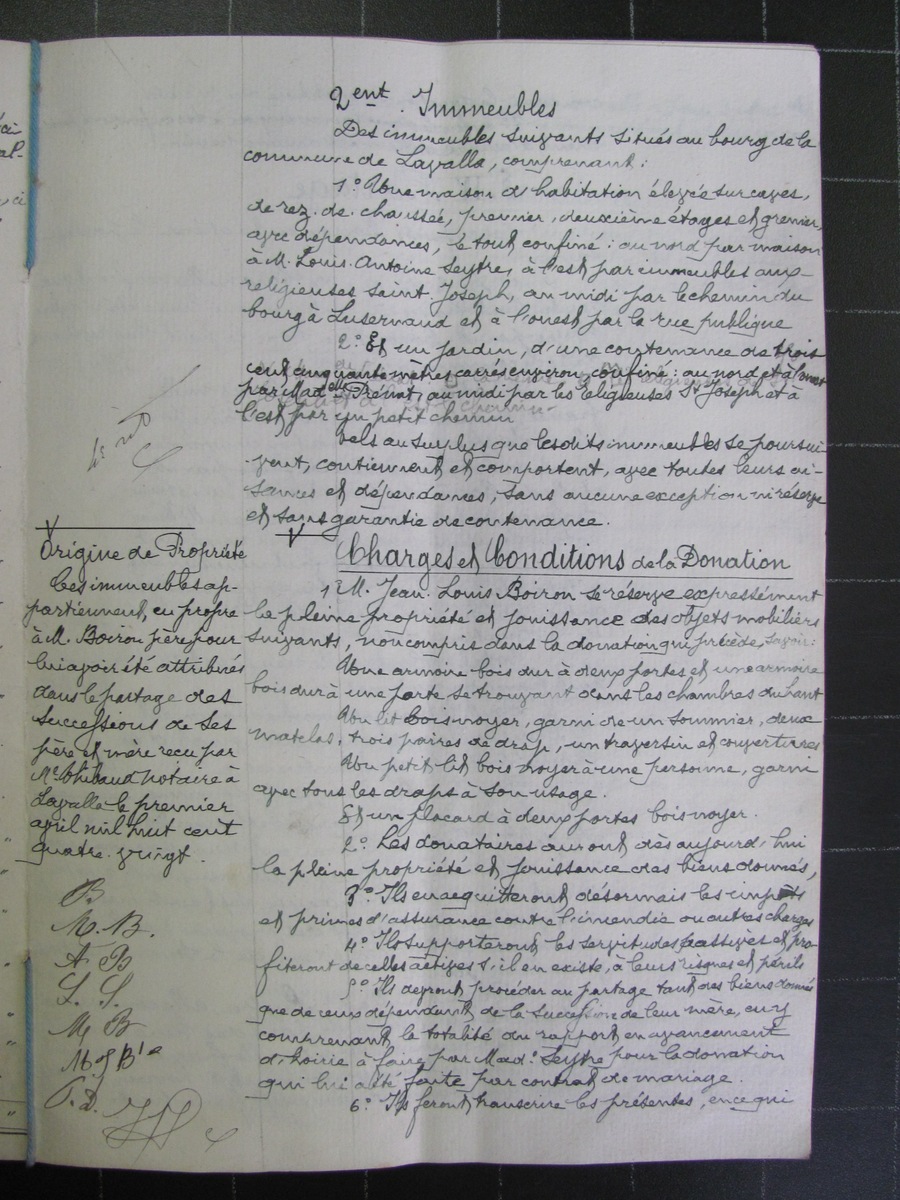 2ent. Immeubles
Des immeubles suivants situés au bourg de la
commune de Lavalla, comprenant:
1° Une maison d'habitation élevée sur caves,
de rez-de-chaussée, premier, deuxième étages et grenier,
avec dépendances, le tout confiné: au nord par maison
à M. Louis-Antoine Seytre, à l'est par immeubles aux
religieuses Saint-Joseph, au midi par le chemin du
bourg à Luzernaud et à l'ouest par la rue publique
2° Et un jardin, d'une contenance de trois
cent cinquante mètres carrés environ, confiné: au nord et à l'ouest
par Madelle Prénat, au midi par les religieuses St Joseph et à
l'est par un petit chemin
Tels au surplus que lesdits immeubles se poursui-
vent, contiennent et comportent, avec toutes leurs ai-
sances et dépendances, sans aucune exception ni réserve
et sans garantie de contenance.
Charges et Conditions de la Donation
1° M. Jean-Louis Boiron se réserve expressément
la pleine propriété et jouissance des objets mobiliers
suivants, non compris dans la donation qui précède, savoir:
Une armoire bois dur à deux portes et une armoire
bois dur à une porte se trouvant dans les chambres du haut
Un lit bois noyer, garni de un sommier, deux
matelas, trois paires de drap, un traversin et couvertures
Un petit lit bois noyer à une personne, garni
avec tous les draps à son usage.
Et un placard à deux portes bois noyer.
2° Les donataires auront dès aujourd'hui
la pleine propriété et jouissance des biens donnés,
3° Ils en acquitteront désormais les impôts
et primes d'assurance contre l'incendie ou autres charges
4° Ils supporteront les servitudes passives et pro-
fiteront de celles actives s'il en existe, à leurs risques et périls
5° Ils devront procéder au partage tant des biens donnés
que de ceux dépendant de la succession de leur mère, en y
comprenant la totalité du rapport en avancement
d'hoirie à faire par Made Seytre pour la donation
qui lui a été faite par contrat de mariage.
6° Ils feront transcrire les présentes, en ce qui
Origine de Propriété
Ces immeubles ap-
partiennent, en propre
à M. Boiron père pour
lui avoir été attribués
dans le partage des
successions de ses
père et mère reçu par
Me Thibaud notaire à
Lavalla le premier
avril mil huit cent
quatre-vingt.
B.
M. B.
A B
L. S.
M B
M J B
P. D.